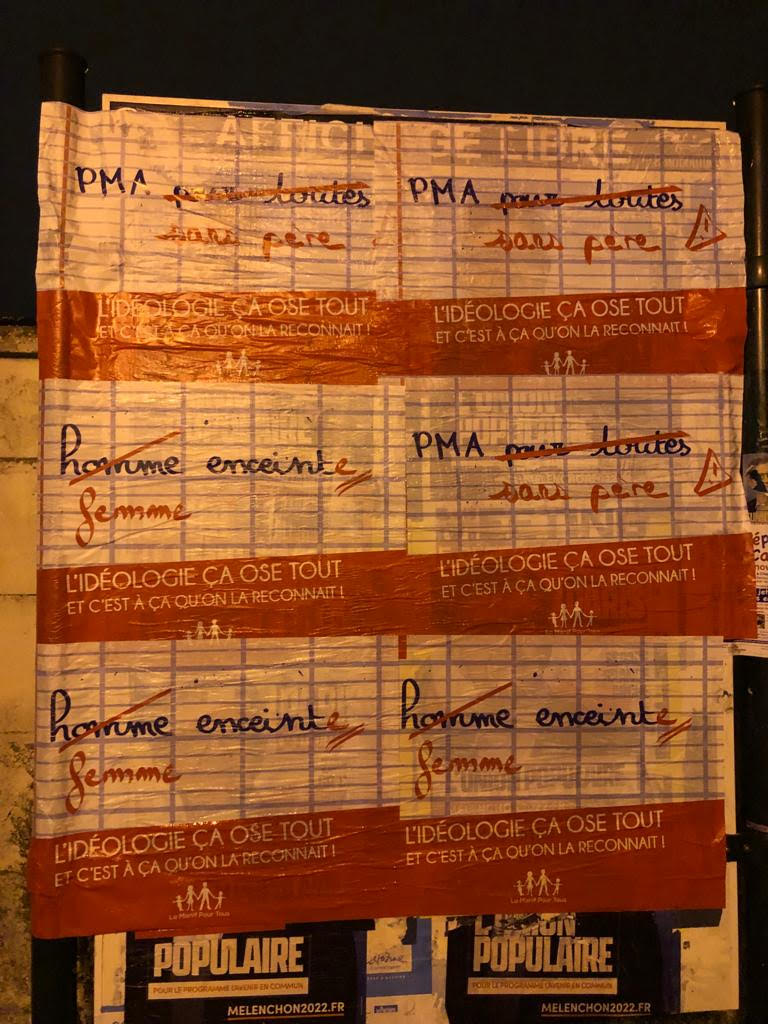 AFFICHAGE LIBRE
PMA pour toutes
sans père
L'IDÉOLOGIE ÇA OSE TOUT
ET C'EST À ÇA QU'ON LA RECONNAIT !
PMA pour toutes
sans père
L'IDÉOLOGIE ÇA OSE TOUT
ET C'EST À ÇA QU'ON LA RECONNAIT !
homme enceinte
femme
L'IDÉOLOGIE ÇA OSE TOUT
ET C'EST À ÇA QU'ON LA RECONNAIT !
PMA pour toutes
sans père
L'IDÉOLOGIE ÇA OSE TOUT
ET C'EST À ÇA QU'ON LA RECONNAIT !
La Manif Pour Tous
homme enceinte
femme
L'IDÉOLOGIE ÇA OSE TOUT
ET C'EST À ÇA QU'ON LA RECONNAIT !
La Manif Pour Tous
homme enceinte
femme
L'IDÉOLOGIE ÇA OSE TOUT
ET C'EST À ÇA QU'ON LA RECONNAIT !
La Manif Pour Tous
POPULAIRE
POUR LE PROGRAMME L'AVENIR EN COMMUN
MELENCHON2022.FR
L'UNION
POPULAIRE
POUR LE PROGRAMME L'AVENIR EN COMMUN
MELENCHON2022.FR